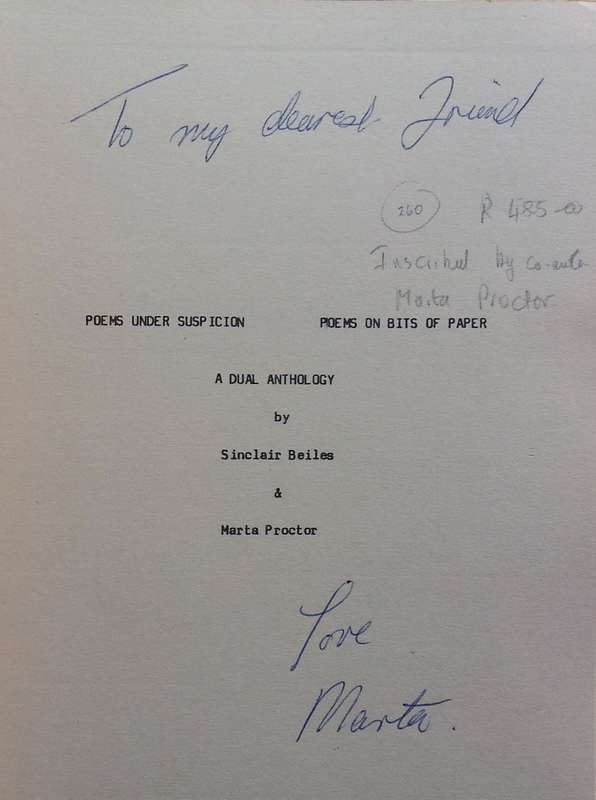 To my dearest Friend
260 R 485-00
Inscribed by co-author
Marta Proctor
POEMS UNDER SUSPICION POEMS ON BITS OF PAPER
A DUAL ANTHOLOGY
by
Sinclair Beiles
&
Marta Proctor
Love
Marta.